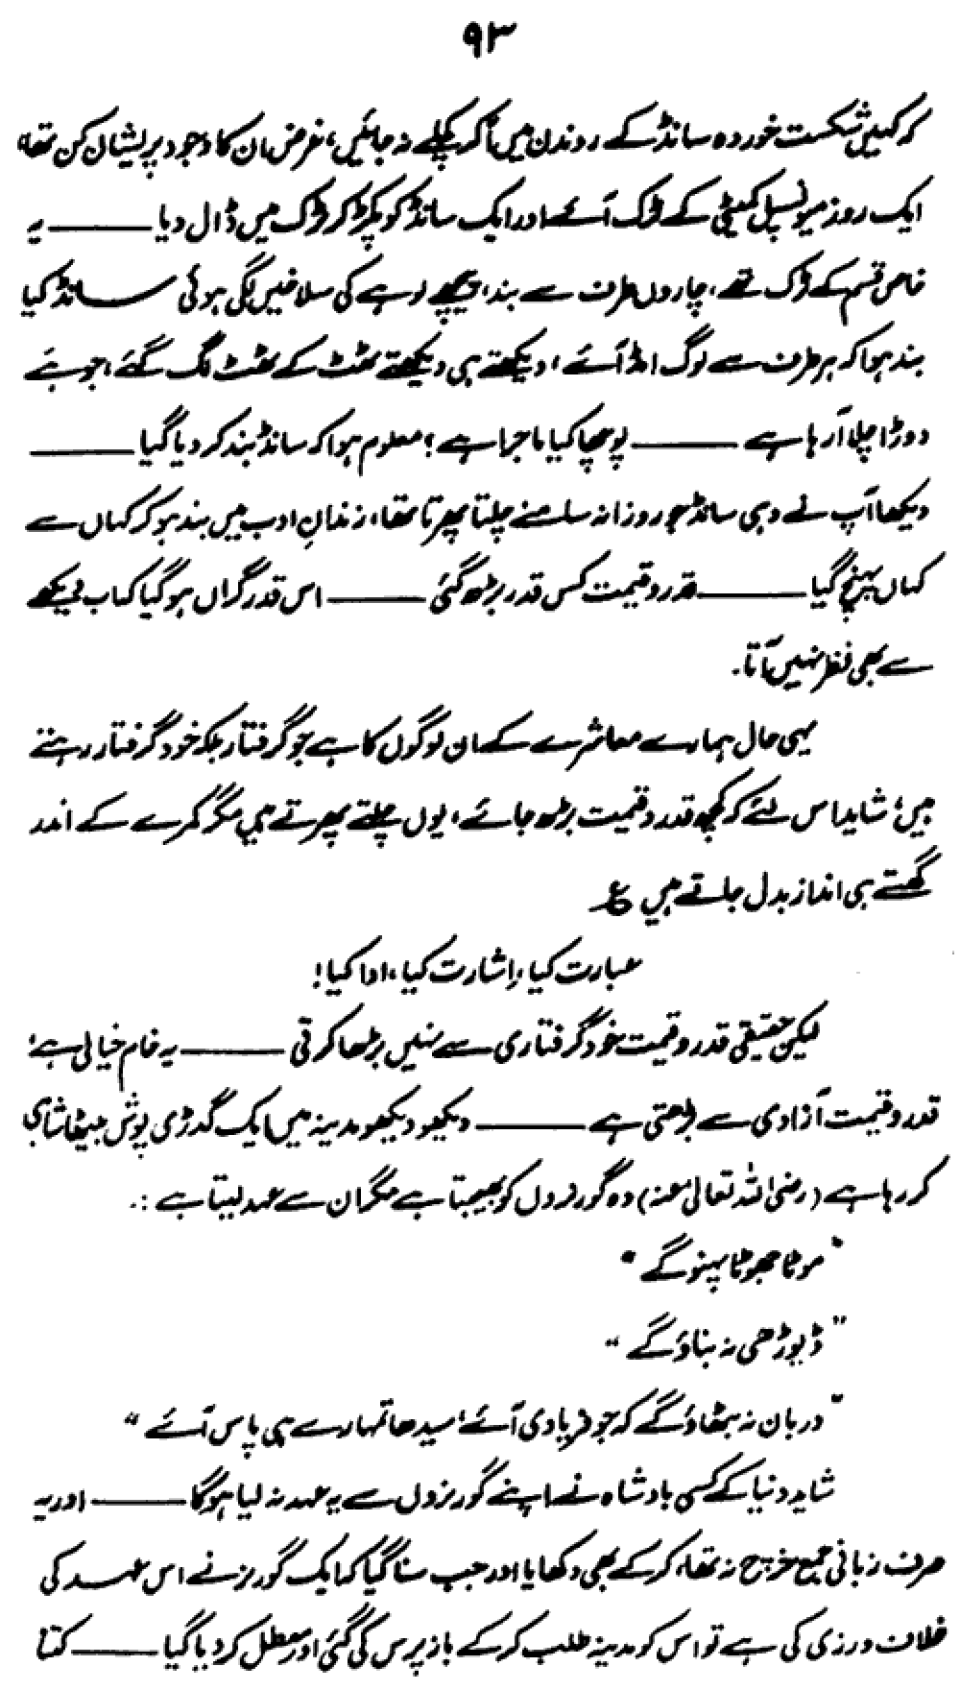 ۹۳
کہ کہیں شکست خوردہ سانڈ کے روندن میں آکر کچلے نہ جائیں، غرض ان کا وجود پریشان کن تھا،
ایک روز میونسپل کمیٹی کے ٹرک آئے اور ایک سانڈ کو پکڑ کر ٹرک میں ڈال دیا ——— یہ
خاص قسم کے ٹرک تھے، چاروں طرف سے بند، پیچھے لوہے کی سلاخیں لگی ہوئی سانڈ کیا
بند ہوا کہ ہر طرف سے لوگ امڈ آئے، دیکھتے ہی دیکھتے ٹھٹ کے ٹھٹ لگ گئے، جو ہے
دوڑا چلا آ رہا ہے ——— پوچھا کیا ماجرا ہے؟ معلوم ہوا کہ سانڈ بند کر دیا گیا ———
دیکھا آپ نے وہی سانڈ جو روزانہ سامنے چلتا پھرتا تھا، زندانِ ادب میں بند ہو کر کہاں سے
کہاں پہنچ گیا ——— قدر و قیمت کس قدر بڑھ گئی ——— اس قدر گراں ہو گیا کہ اب دیکھے
سے بھی نظر نہیں آتا۔
یہی حال ہمارے معاشرے کے ان لوگوں کا ہے جو گرفتار بلکہ خود گرفتار رہتے
ہیں؛ شاید اس لئے کہ کچھ قدر و قیمت بڑھ جائے، یوں چلتے پھرتے ہیں مگر کمرے کے اندر
گھستے ہی انداز بدل جاتے ہیں ع
عبارت کیا، اشارت کیا، ادا کیا!
لیکن حقیقی قدر و قیمت خود گرفتاری سے نہیں بڑھا کرتی ——— یہ خام خیالی ہے؛
قدر و قیمت آزادی سے بڑھتی ہے ——— دیکھو دیکھو مدینہ میں ایک گدڑی پوش بیٹھا شاہی
کر رہا ہے (رضی اللہ تعالیٰ عنہ) وہ گورنروں کو بھیجتا ہے مگر ان سے عہد لیتا ہے :۔
"موٹا جھوٹا پہنو گے"
"ڈیوڑھی نہ بناؤ گے"
"دربان نہ بٹھاؤ گے کہ جو فریادی آئے؛ سیدھا تمہارے ہی پاس آئے"
شاید دنیا کے کسی بادشاہ نے اپنے گورنروں سے یہ عہد نہ لیا ہوگا ——— اور یہ
صرف زبانی جمع خرچ نہ تھا، کر کے بھی دکھایا اور جب سنا گیا کہ ایک گورنر نے اس عہد کی
خلاف ورزی کی ہے تو اس کو مدینہ طلب کر کے باز پرس کی گئی اور معطل کر دیا گیا ——— کتنا